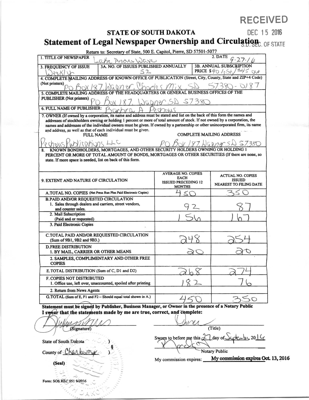 RECEIVED
DEC 15 2016
S.D. SEC. OF STATE
STATE OF SOUTH DAKOTA
Statement of Legal Newspaper Ownership and Circulation
Return to: Secretary of State, 500 E. Capitol, Pierre, SD 57501-5077
1. TITLE OF NEWSPAPER
2. DATE
1. FREQUENCY OF ISSUE
3A. NO. OF ISSUES PUBLISHED ANNUALLY
52
3B. ANNUAL SUBSCRIPTION
PRICE $
4. COMPLETE MAILING ADDRESS OF KNOWN OFFICE OF PUBLICATION (Street, City, County, State and ZIP+4 Code)
(Not printers)
PO Box 187 Wagner Charles Mix SD 57380-0187
5. COMPLETE MAILING ADDRESS OF THE HEADQUARTERS OR GENERAL BUSINESS OFFICES OF THE
PUBLISHER (Not printer)
PO Box 187 Wagner SD 57380
6. FULL NAME OF PUBLISHER:
7. OWNER (If owned by a corporation, its name and address must be stated and but on the back of this form the names and
addresses of stockholders owning or holding 1 percent or more of total amount of stock. If not owned by a corporation, the
names and addresses of the individual owners must be given. If owned by a partnership or other unincorporated firm, its name
and address, as well as that of each individual must be given.
FULL NAME
COMPLETE MAILING ADDRESS
PO Box 187 Wagner SD 57380
8. KNOWN BONDHOLDERS, MORTGAGEES, AND OTHER SECURITY HOLDERS OWNING OR HOLDING 1
PERCENT OR MORE OF TOTAL AMOUNT OF BONDS, MORTGAGES OR OTHER SECURITIES (If there are none, so
state. If more space is needed, list on back of this form.
9. EXTENT AND NATURE OF CIRCULATION
AVERAGE NO. COPIES
EACH
ISSUED PRECEDING 12
MONTHS
ACTUAL NO. COPIES
ISSUED
NEAREST TO FILING DATE
A. TOTAL NO. COPIES (Net Press Run Plus Paid Electronic Copies)
450
350
B. PAID AND/OR REQUESTED CIRCULATION
1. Sales through dealers and carriers, street vendors,
and counter sales.
92
87
2. Mail Subscription
(Paid and or requested)
156
167
3. Paid Electronic Copies
C. TOTAL PAID AND/OR REQUESTED CIRCULATION
(Sum of 9B1, 9B2 and 9B3.)
248
254
D. FREE DISTRIBUTION
1. BY MAIL, CARRIER OR OTHER MEANS
20
20
2. SAMPLES, COMPLIMENTARY AND OTHER FREE
COPIES
E. TOTAL DISTRIBUTION (Sum of C, D1 and D2)
268
274
F. COPIES NOT DISTRIBUTED
1. Office use, left over, unaccounted, spoiled after printing
182
76
2. Return from News Agents
G. TOTAL (Sum of E, F1 and F2 - Should equal total shown in A.)
450
350
Statement must be signed by Publisher, Business Manager, or Owner in the presence of a Notary Public
I swear that the statements made by me are true, correct, and complete:
(Signature)
Owner
(Title)
State of South Dakota
Sworn to before me this 27 day of September 2016
County of
Notary Public
(Seal)
My commission expires: My commission expires Oct. 13, 2016